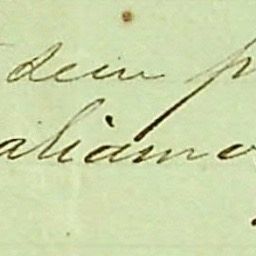 dein p
aliamo